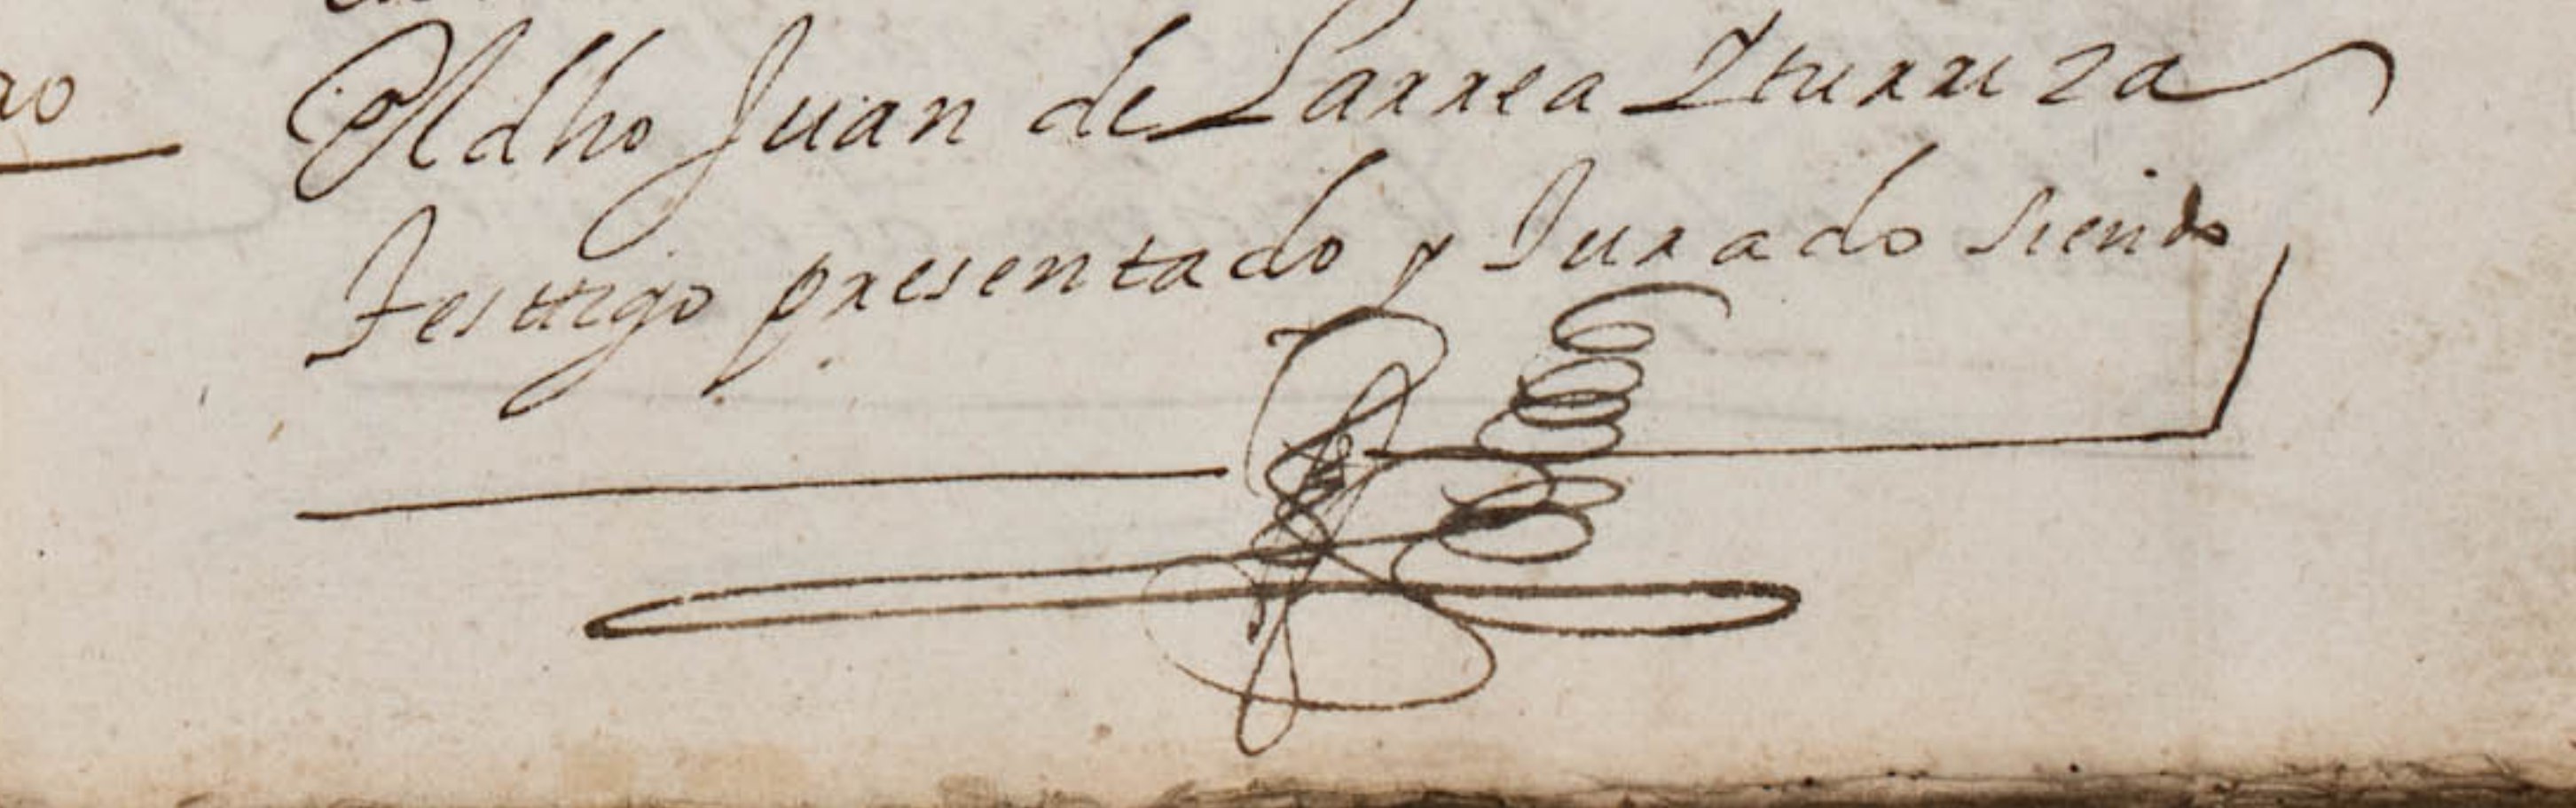 no
El dho Juan de Larrea Yturriza
Testtigo presentado y Jurado siendo